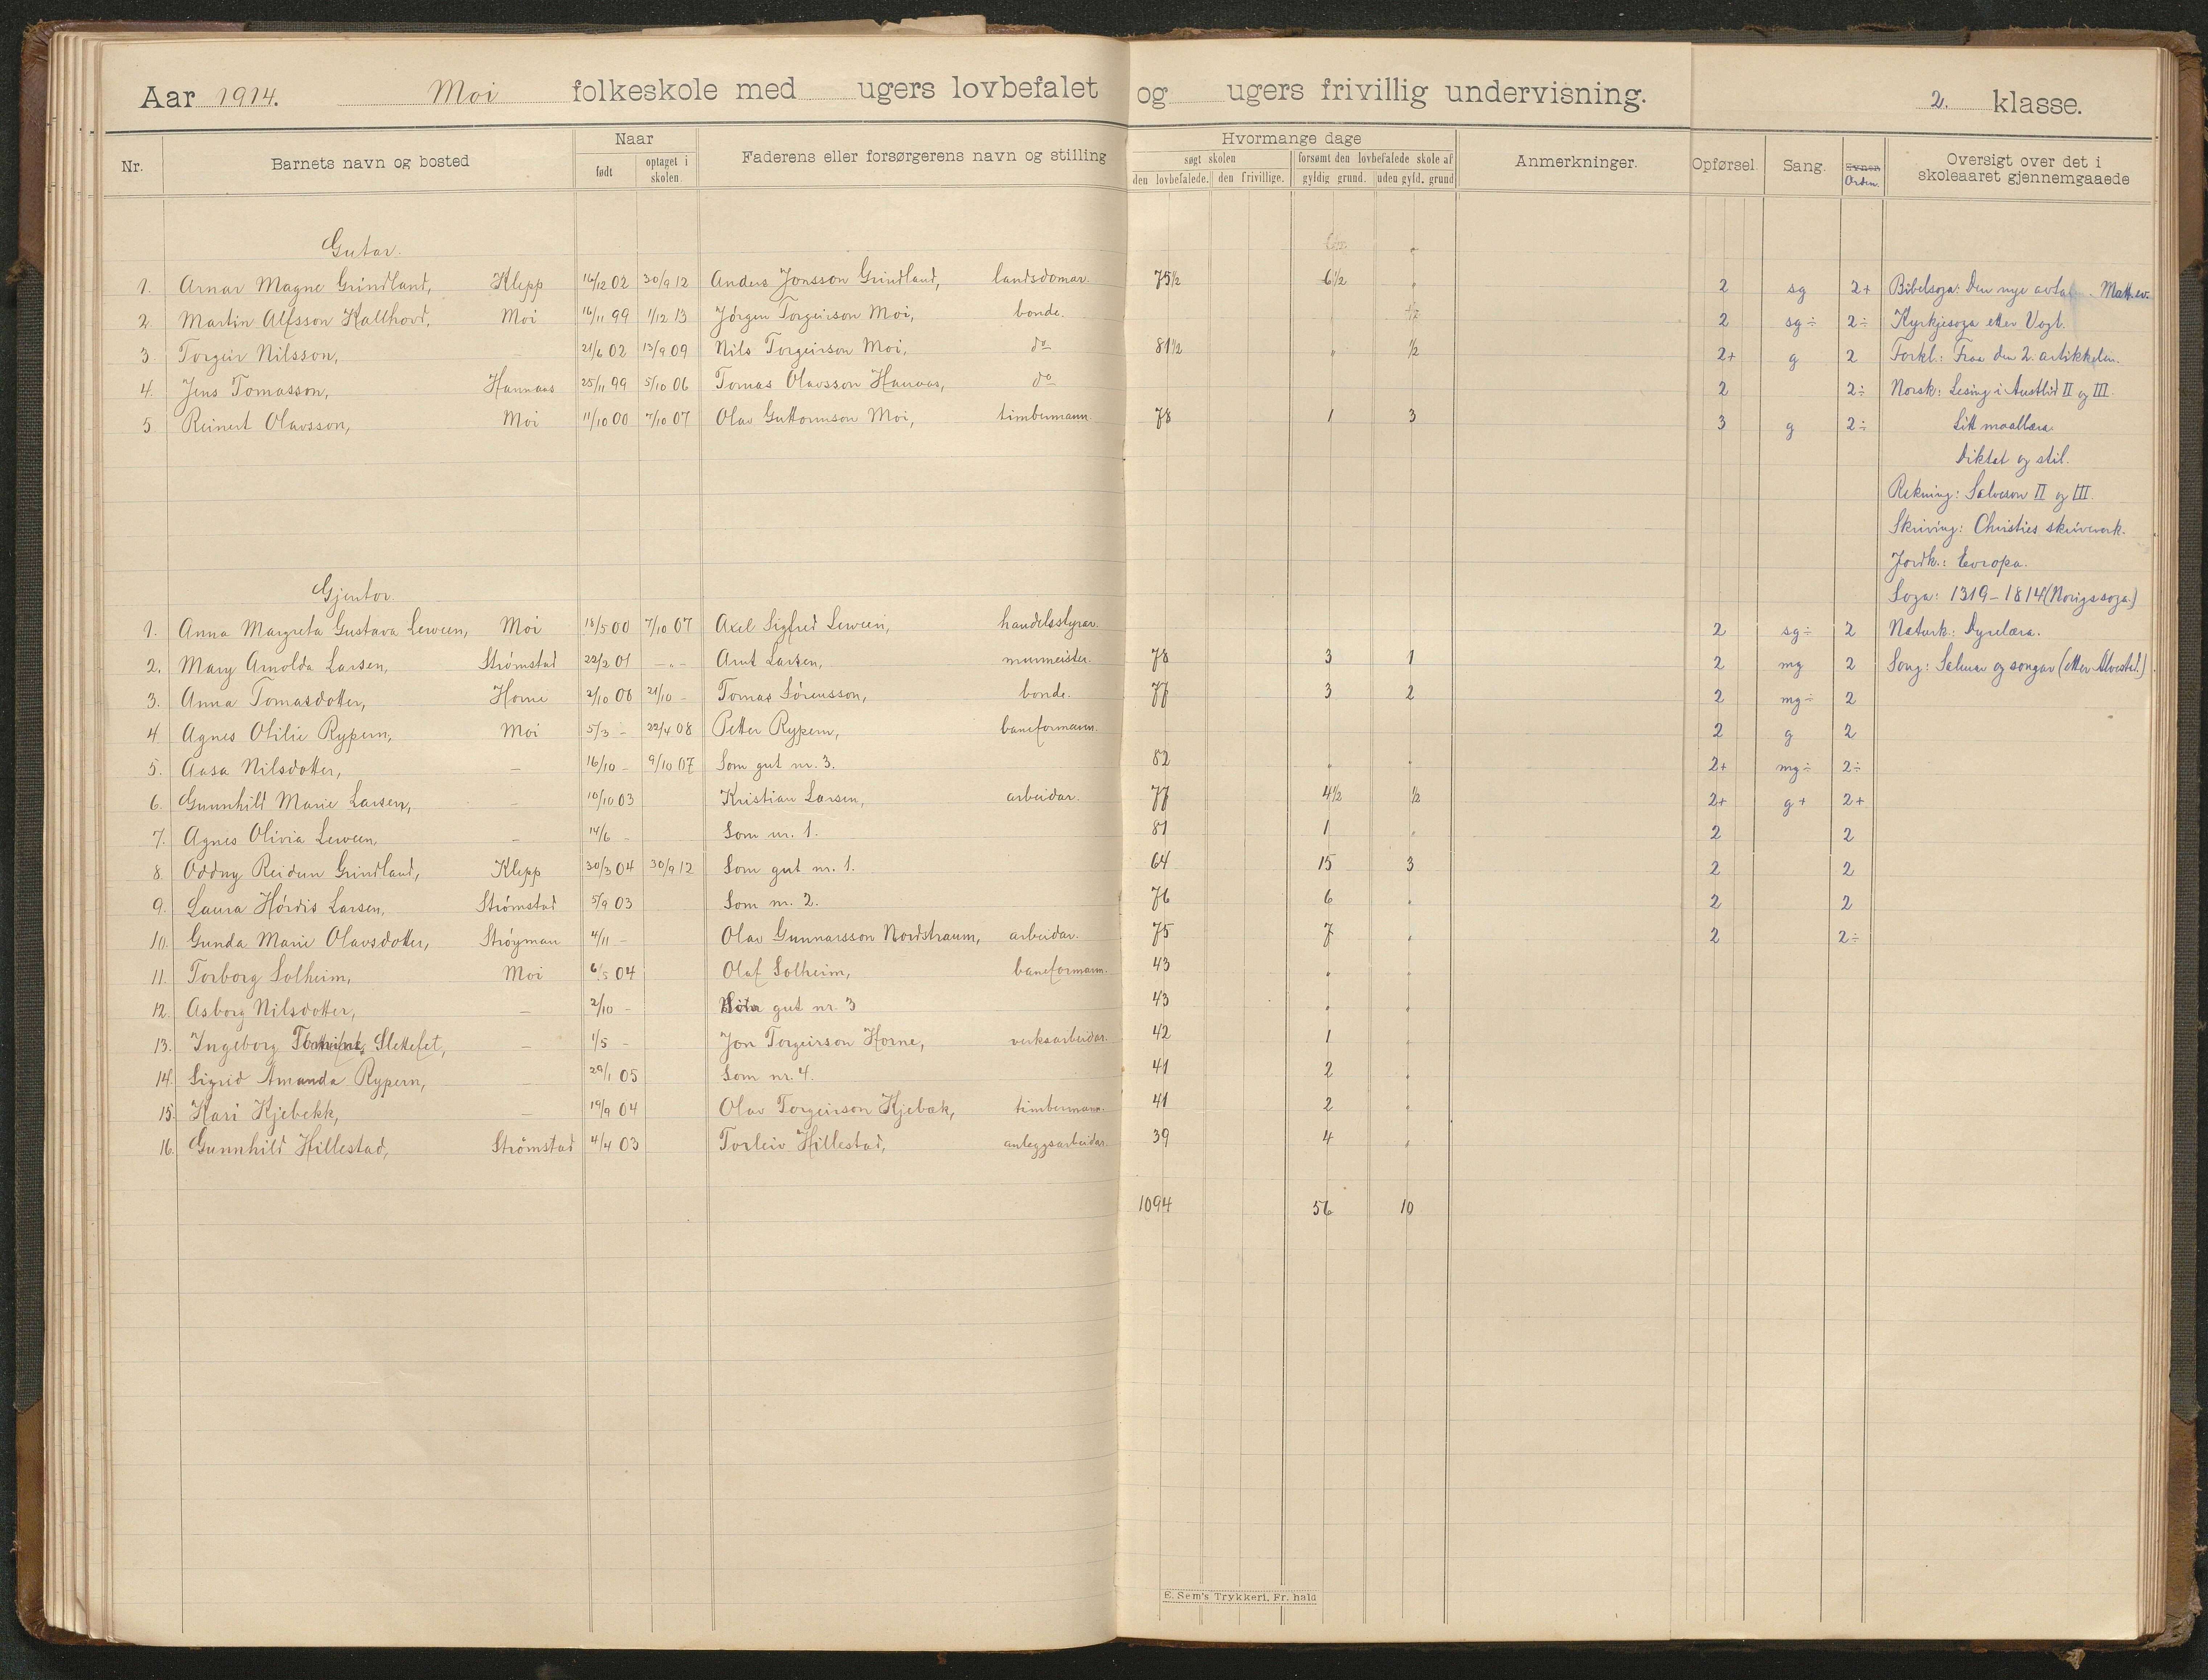 Aar 1914. Moi folkeskole med ugers lovbefalet og ugers frivillig undervisning. 2. klasse.
Nr. Barnets navn og bosted Naar født optaget i skolen. Faderens eller forsørgerens navn og stilling Hvormange dage søgt skolen den lovbefalede. den frivillige. forsømt den lovbefalede skole af gyldig grund. uden gyld. grund Anmerkninger. Opførsel Sang. Evner Orden. Oversigt over det i skoleaaret gjennemgaaede
Gutar.
1. Arnar Magne Grindland, Klepp 16/12 02 30/9 12 Anders Jonsson Grindland, landsdomar 75½ 6½ „ 2 sg 2+ Bibelsoga: Den nye Matt. ev.
2. Martin Alfsson Kallhovd, Moi 16/11 99 1/12 13 Jörgen Torgeirson Moi, bonde. 2 sg÷ 2÷ Kyrkjesoga etter Vogt.
3. Torgeir Nilsson, — 21/6 02 13/9 09 Nils Torgeirson Moi, do 81½ „ ½ 2+ g 2 Forkl.: Fraa den 2. artikkelen.
4. Jens Tomasson, Hannaas 25/11 99 5/10 06 Tomas Olavsson Hanaas, do 2 2÷ Norsk: Lesing i Austlid II og III.
5. Reinert Olavsson, Moi 11/10 00 7/10 07 Olav Guttormson Moi, timbermann. 78 1 3 3 g 2÷ Litt maallæra.
Diktat og stil.
Rekning: Salveson II og III.
Skriving: Christies skriveverk.
Jordk.: Evropa.
Gjentor. Soga: 1319–1814 (Norigssoga.)
1. Anna Margreta Gustava Leween, Moi 18/5 00 7/10 07 Axel Sigfred Leween, handelsstyrar. 2 sg÷ 2 Naturk.: Dyrelæra.
2. Mary Arnolda Larsen, Strömstad 22/2 01 –„– Arnt Larsen, murmeister. 78 3 1 2 mg 2 Song: Salmar og songar (etter Alvestad.)
3. Anna Tomasdotter, Horne 2/10 00 21/10 – Tomas Sörensson, bonde. 77 3 2 2 mg÷ 2
4. Agnes Otilie Rypern, Moi 5/3 – 22/4 08 Petter Rypern, baneformann. 2 g 2
5. Aasa Nilsdotter, — 16/10 – 9/10 07 Som gut nr. 3. 82 „ „ 2+ mg÷ 2÷
6. Gunnhild Marie Larsen, – 10/10 03 Kristian Larsen, arbeidar. 77 4½ ½ 2+ g+ 2+
7. Agnes Olivia Leween, – 14/6 – Som nr. 1. 81 1 „ 2 2
8. Oddny Reidun Grindland, Klepp 30/3 04 30/9 12 Som gut nr. 1. 64 15 3 2 2
9. Laura Hördis Larsen, Strömstad 5/9 03 Som nr. 2. 76 6 „ 2 2
10. Gunda Marie Olavsdotter, Ströyman 4/11 – Olav Gunnarsson Nordstraum, arbeidar. 75 7 „ 2 2÷
11. Torborg Solheim, Moi 6/5 04 Olaf Solheim, baneformann. 43 „ „
12. Asborg Nilsdotter, — 2/10 – Som gut nr. 3 43 „ „
13. Ingeborg Slettefet, – 1/5 – Jon Torgeirson Horne, verksarbeidar. 42 1 „
14. Sigrid Amanda Rypern, — 29/1 05 Som nr. 4. 41 2 „
15. Kari Kjebekk, – 19/9 04 Olav Torgeirson Kjebæk, timbermann. 41 2 „
16. Gunnhild Hillestad, Strömstad 4/4 03 Torleiv Hillestad, anleggsarbeidar. 39 4 „
1094 56 10
E. Sem's Trykkeri, Fr. hald